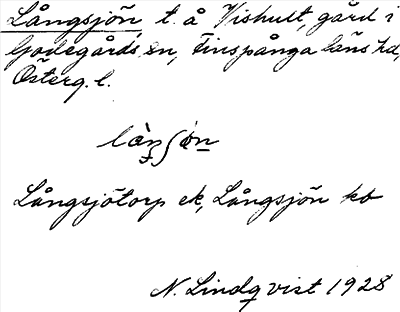 Långsjön t. å Vishult, gård i
Godegårds sn, Finspånga läns hd,
Österg. l.
Långsjötorp ek, Långsjön kb
N. Lindqvist 1928